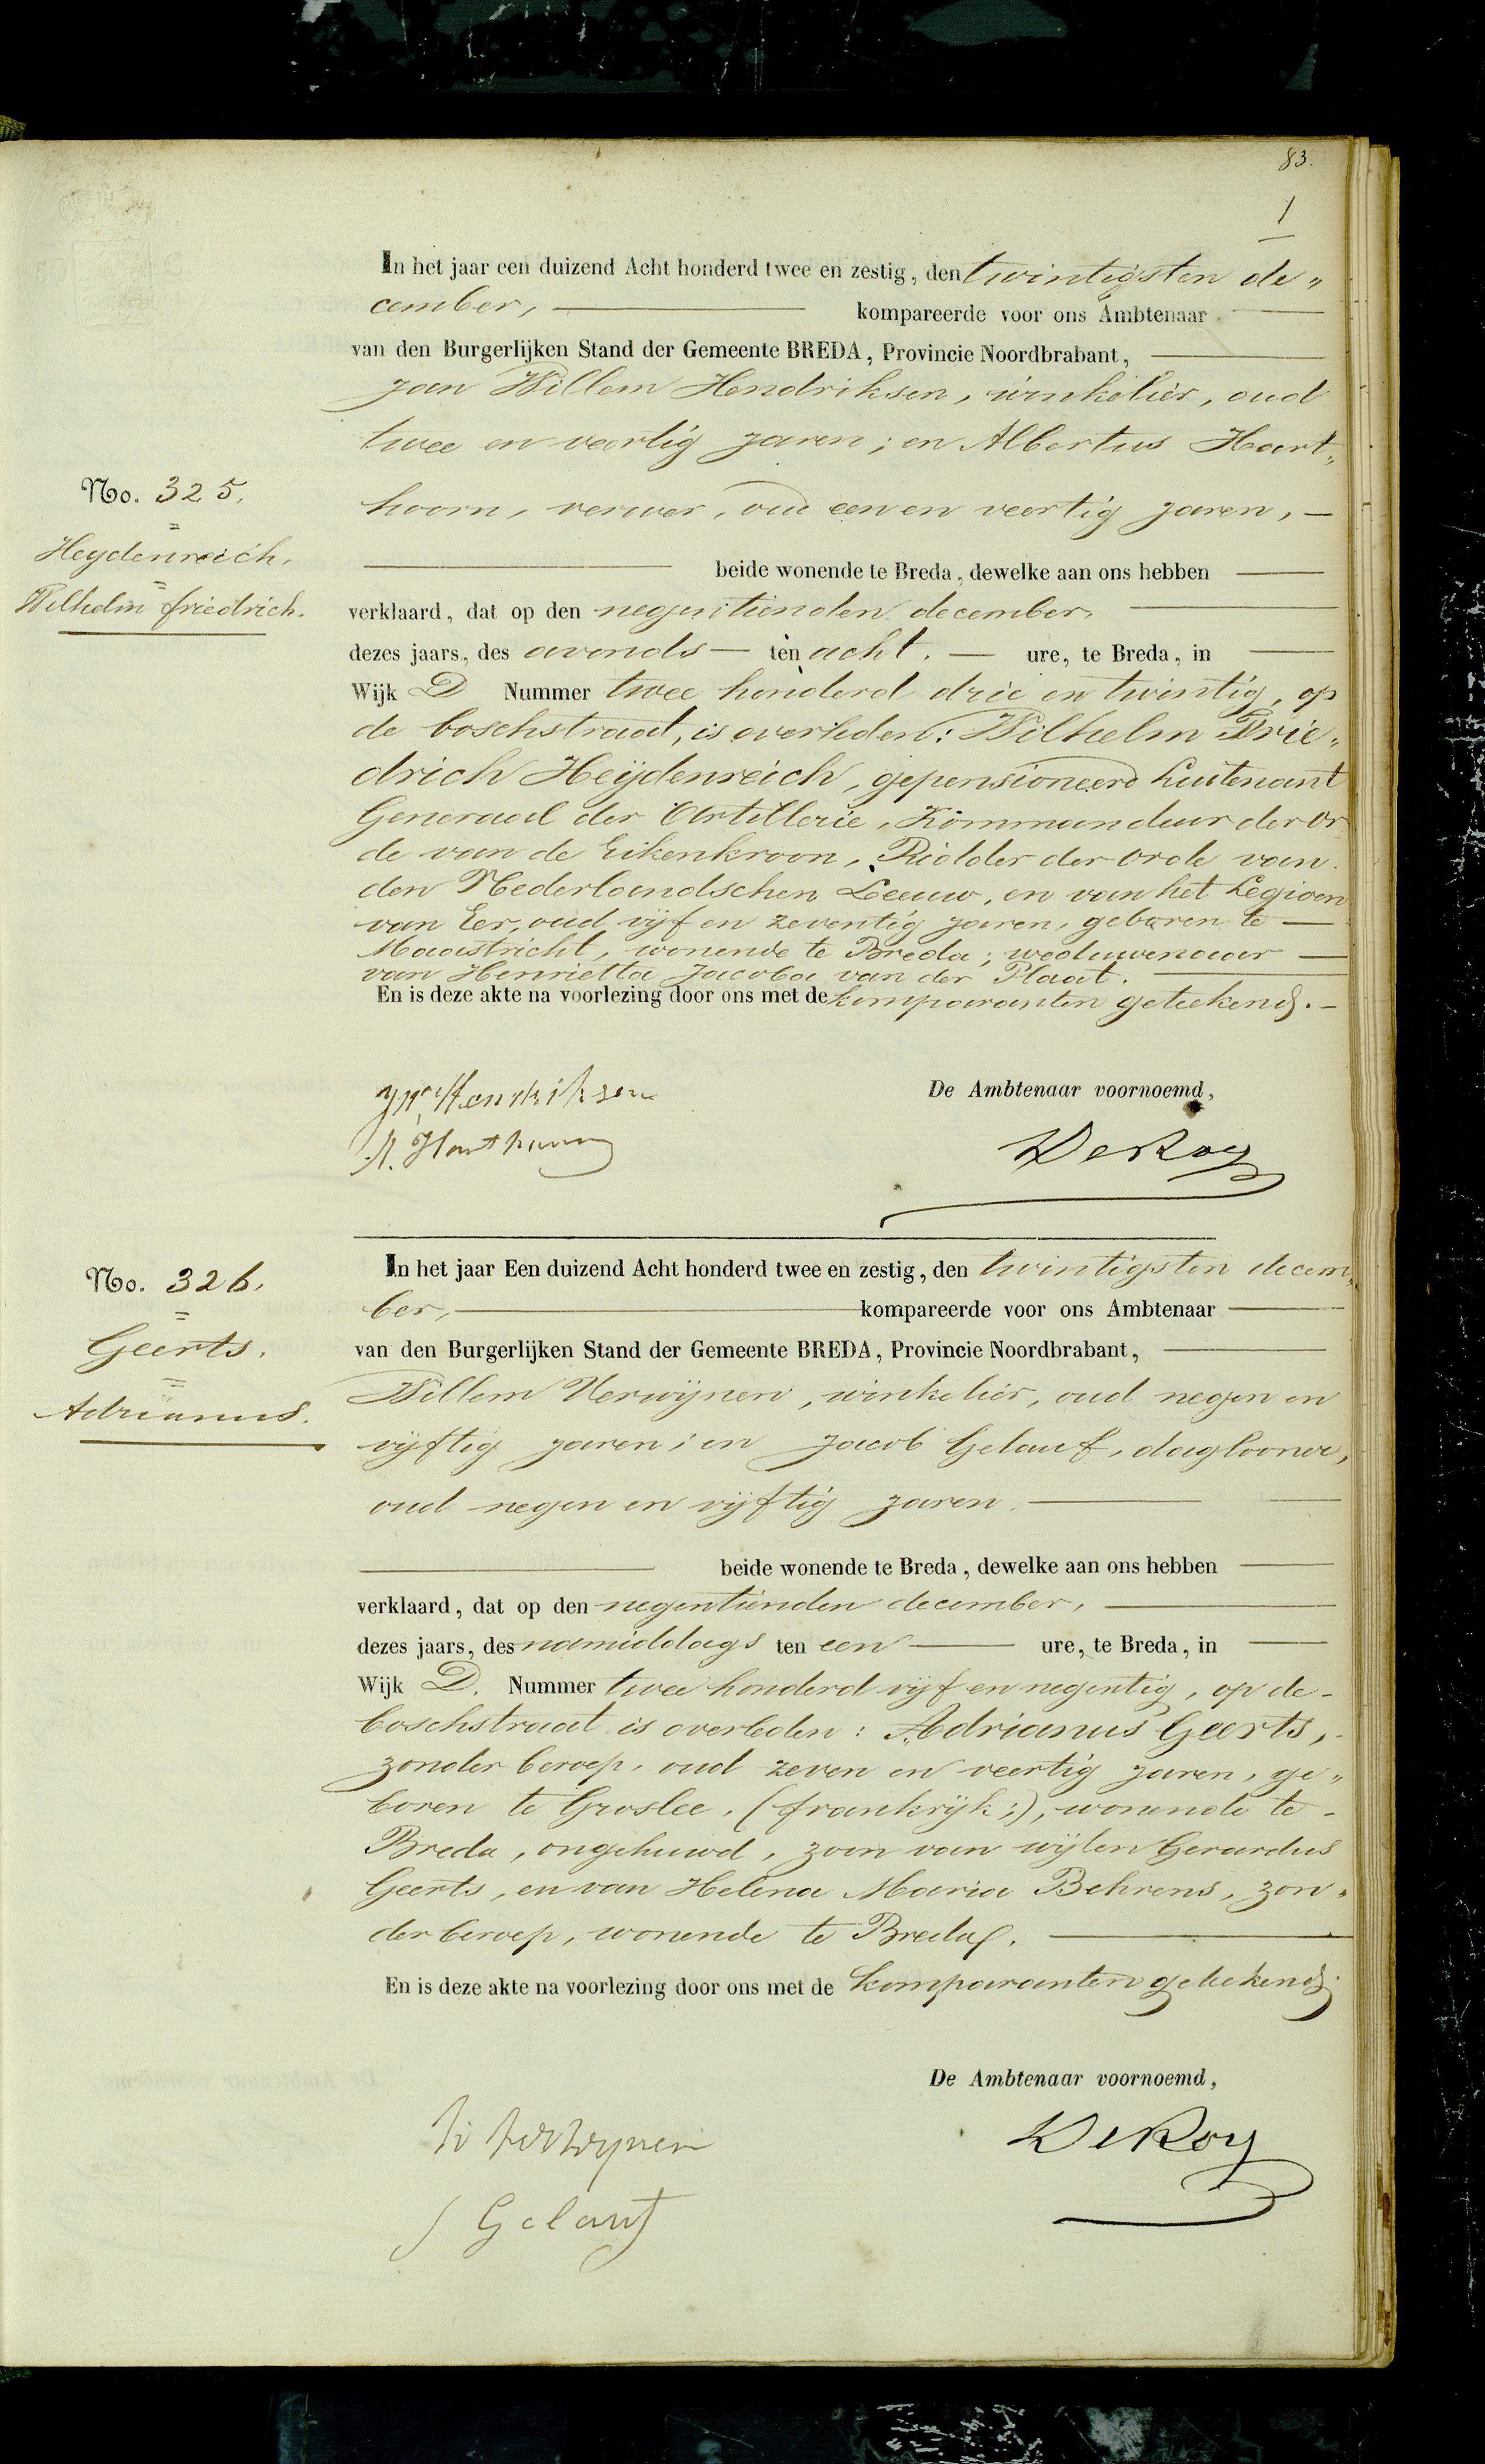 83.
1
In het jaar een duizend Acht honderd twee en zestig, den twintigsten de„
cember, kompareerde voor ons Ambtenaar
van den Burgerlijken Stand der Gemeente BREDA, Provincie Noordbrabant,
Jan Willem Hendriksen, winkelier, oud
twee en veertig jaren; en Albertus Hart„
hoorn, verwer, oud een en veertig jaren,
No. 325.
Heydenreich,
Wilhelm friedrich.
beide wonende te Breda, dewelke aan ons hebben
verklaard, dat op den negentienden december,
dezes jaars, des avonds ten acht. ure, te Breda, in
Wijk D Nummer twee honderd drie en twintig, op
de boschstraat, is overleden: Wilhelm Frie„
drich Heijdenreich, gepensioneerd Luitenant
Generaal der Artillerie, Kommandeur der Or
de van de Eikenkroon, Ridder der Orde van
den Nederlandschen Leeuw, en van het Legioen
van Eer, oud vijf en zeventig jaren, geboren te
Maastricht, wonende te Breda; weduwenaar
van Henrietta Jacoba van der Plaat.
En is deze akte na voorlezing door ons met de komparanten geteekend.
JW Hendriksen
A. Harthoorn
De Ambtenaar voornoemd,
DeRoy
No. 326.
Geerts.
Adrianus.
In het jaar Een duizend Acht honderd twee en zestig, den twintigsten decem„
ber, kompareerde voor ons Ambtenaar
van den Burgerlijken Stand der Gemeente BREDA, Provincie Noordbrabant,
Willem Verwijnen, winkelier, oud negen en
vijftig jaren; en Jacob Gelauf, daglooner,
oud negen en vijftig jaren.
beide wonende te Breda, dewelke aan ons hebben
verklaard, dat op den negentienden december,
dezes jaars, des namiddags ten een ure, te Breda, in
Wijk D. Nummer twee honderd vijf en negentig, op de
boschstraat is overleden: Adrianus Geerts,
zonder beroep, oud zeven en veertig jaren, ge„
boren te Groslee, (frankrijk;), wonende te
Breda, ongehuwd, zoon van wijlen Gerardus
Geerts, en van Helena Maria Behrens, zon„
der beroep, wonende te Breda.
En is deze akte na voorlezing door ons met de komparanten geteekend.
De Ambtenaar voornoemd,
W Verwijnen
J Gelauf
DeRoy